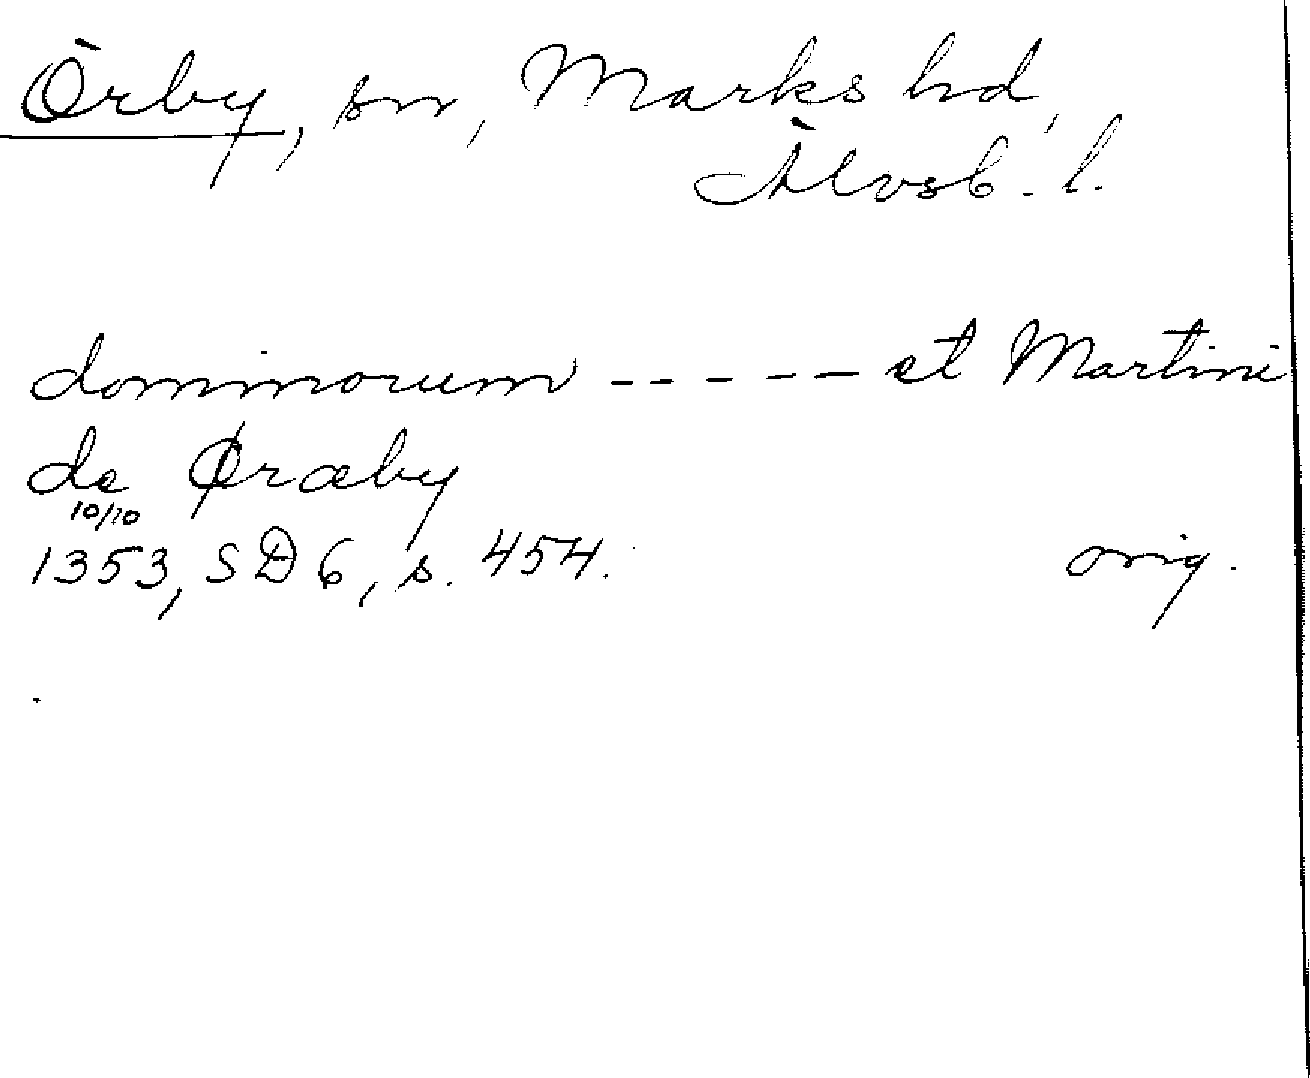 Örby, sn, Marks hd,
Älvsb. l.
dominorum ------ et Martini
de Øræby
10/10
1353, SD 6, s. 454.
orig.